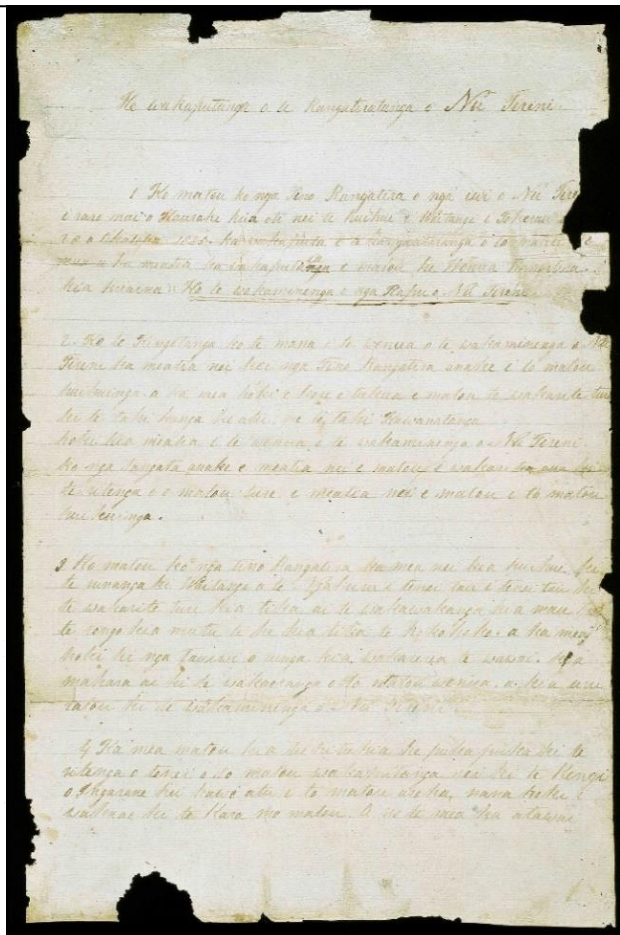 He wakaputanga o te Rangatiratanga o Nu Tireni
1 Ko matou ko nga Tino Rangatira o nga iwi o Nu Tire
i raro mai o Hauraki kua oti nei te huihui i Waitangi i Tokerau
28 o Oketopa 1835 ka wakaputa i te Rangatiratanga o to matou
a ka meatia ka wakaputanga e matou he Wenua Rangatira
kia huaina "Ko te wakaminenga o nga Hapu o Nu Tireni
2. Ko te Kingitanga ko te mana i te wenua o te wakaminenga o Nu
Tireni ka meatia nei kei nga Tino Rangatira anake i to matou
huihuinga a ka mea hoki e kore e tukua e matou te wakarite ture
ki te tahi hunga ke atu, me te tahi Kawanatanga
hoki kia meatia i te wenua o te wakaminenga o Nu Tireni.
ko nga tangata anake e meatia nei e matou e wakarite ana ki
te ritenga o o matou ture e meatia nei e matou i to matou
huihuinga.
3 Ko matou ko nga tino Rangatira ka mea nei kia huihui ki
te runanga ki Waitangi a te Ngahuru i tenei tau i tenei tau ki
te wakarite ture kia tika ai te wakawakanga kia mau
te rongo kia mutu te he kia tika te hokohoko. a ka mea
hoki ki nga tauiwi o runga kia wakarerea te wawai. kia
mahara ai ki te wakaoranga o to matou wenua. a kia uru
ratou ki te wakaminenga o Nu Tireni.
4 Ka mea matou kia tuhituhia he pukapuka ki te
ritenga o tenei o to matou wakaputanga nei ki te Kingi
o Ingarani hei kawe atu i to matou aroha, nana hoki i
wakaae ki te Kara mo matou. A no te mea ka atawai